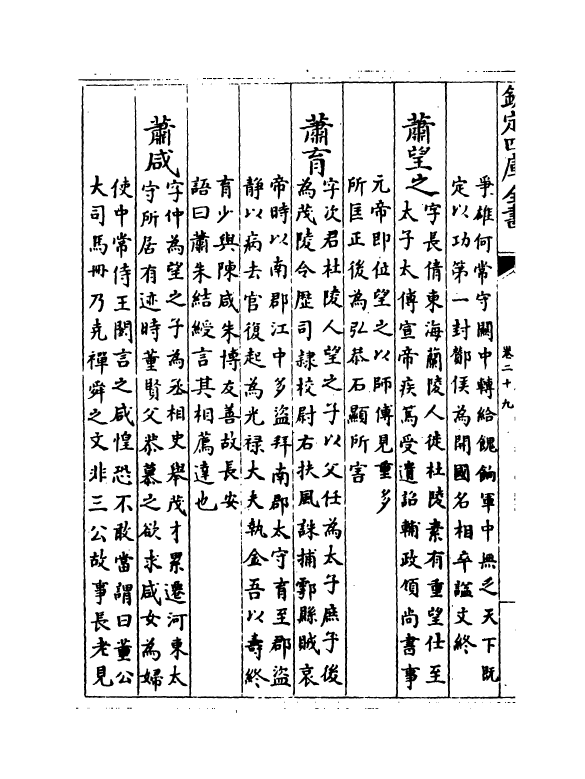 欽定四庫全書
卷二十九
爭雄何常守關中轉給餽餉軍中無乏天下既
定以功第一封酇侯為開國名相卒諡文終
蕭望之
字長倩東海蘭陵人徙杜陵素有重望仕至
太子太傅宣帝疾篤受遺詔輔政領尚書事
元帝即位望之以師傅見重多
所匡正後為弘恭石顯所害
蕭育
字次君杜陵人望之子以父任為太子庶子後
為茂陵令歴司隷校尉右扶風誅捕鄠縣賊哀
帝時以南郡江中多盜拜南郡太守育至郡盜
靜以病去官復起為光禄大夫執金吾以壽終
育少與陳咸朱博友善故長安
語曰蕭朱結綬言其相薦達也
蕭咸
字仲為望之子為丞相史舉茂才累遷河東太
守所居有迹時董賢父恭慕之欲求咸女為婦
使中常侍王閎言之咸惶恐不敢當謂曰董公
大司馬冊乃堯禪舜之文非三公故事長老見